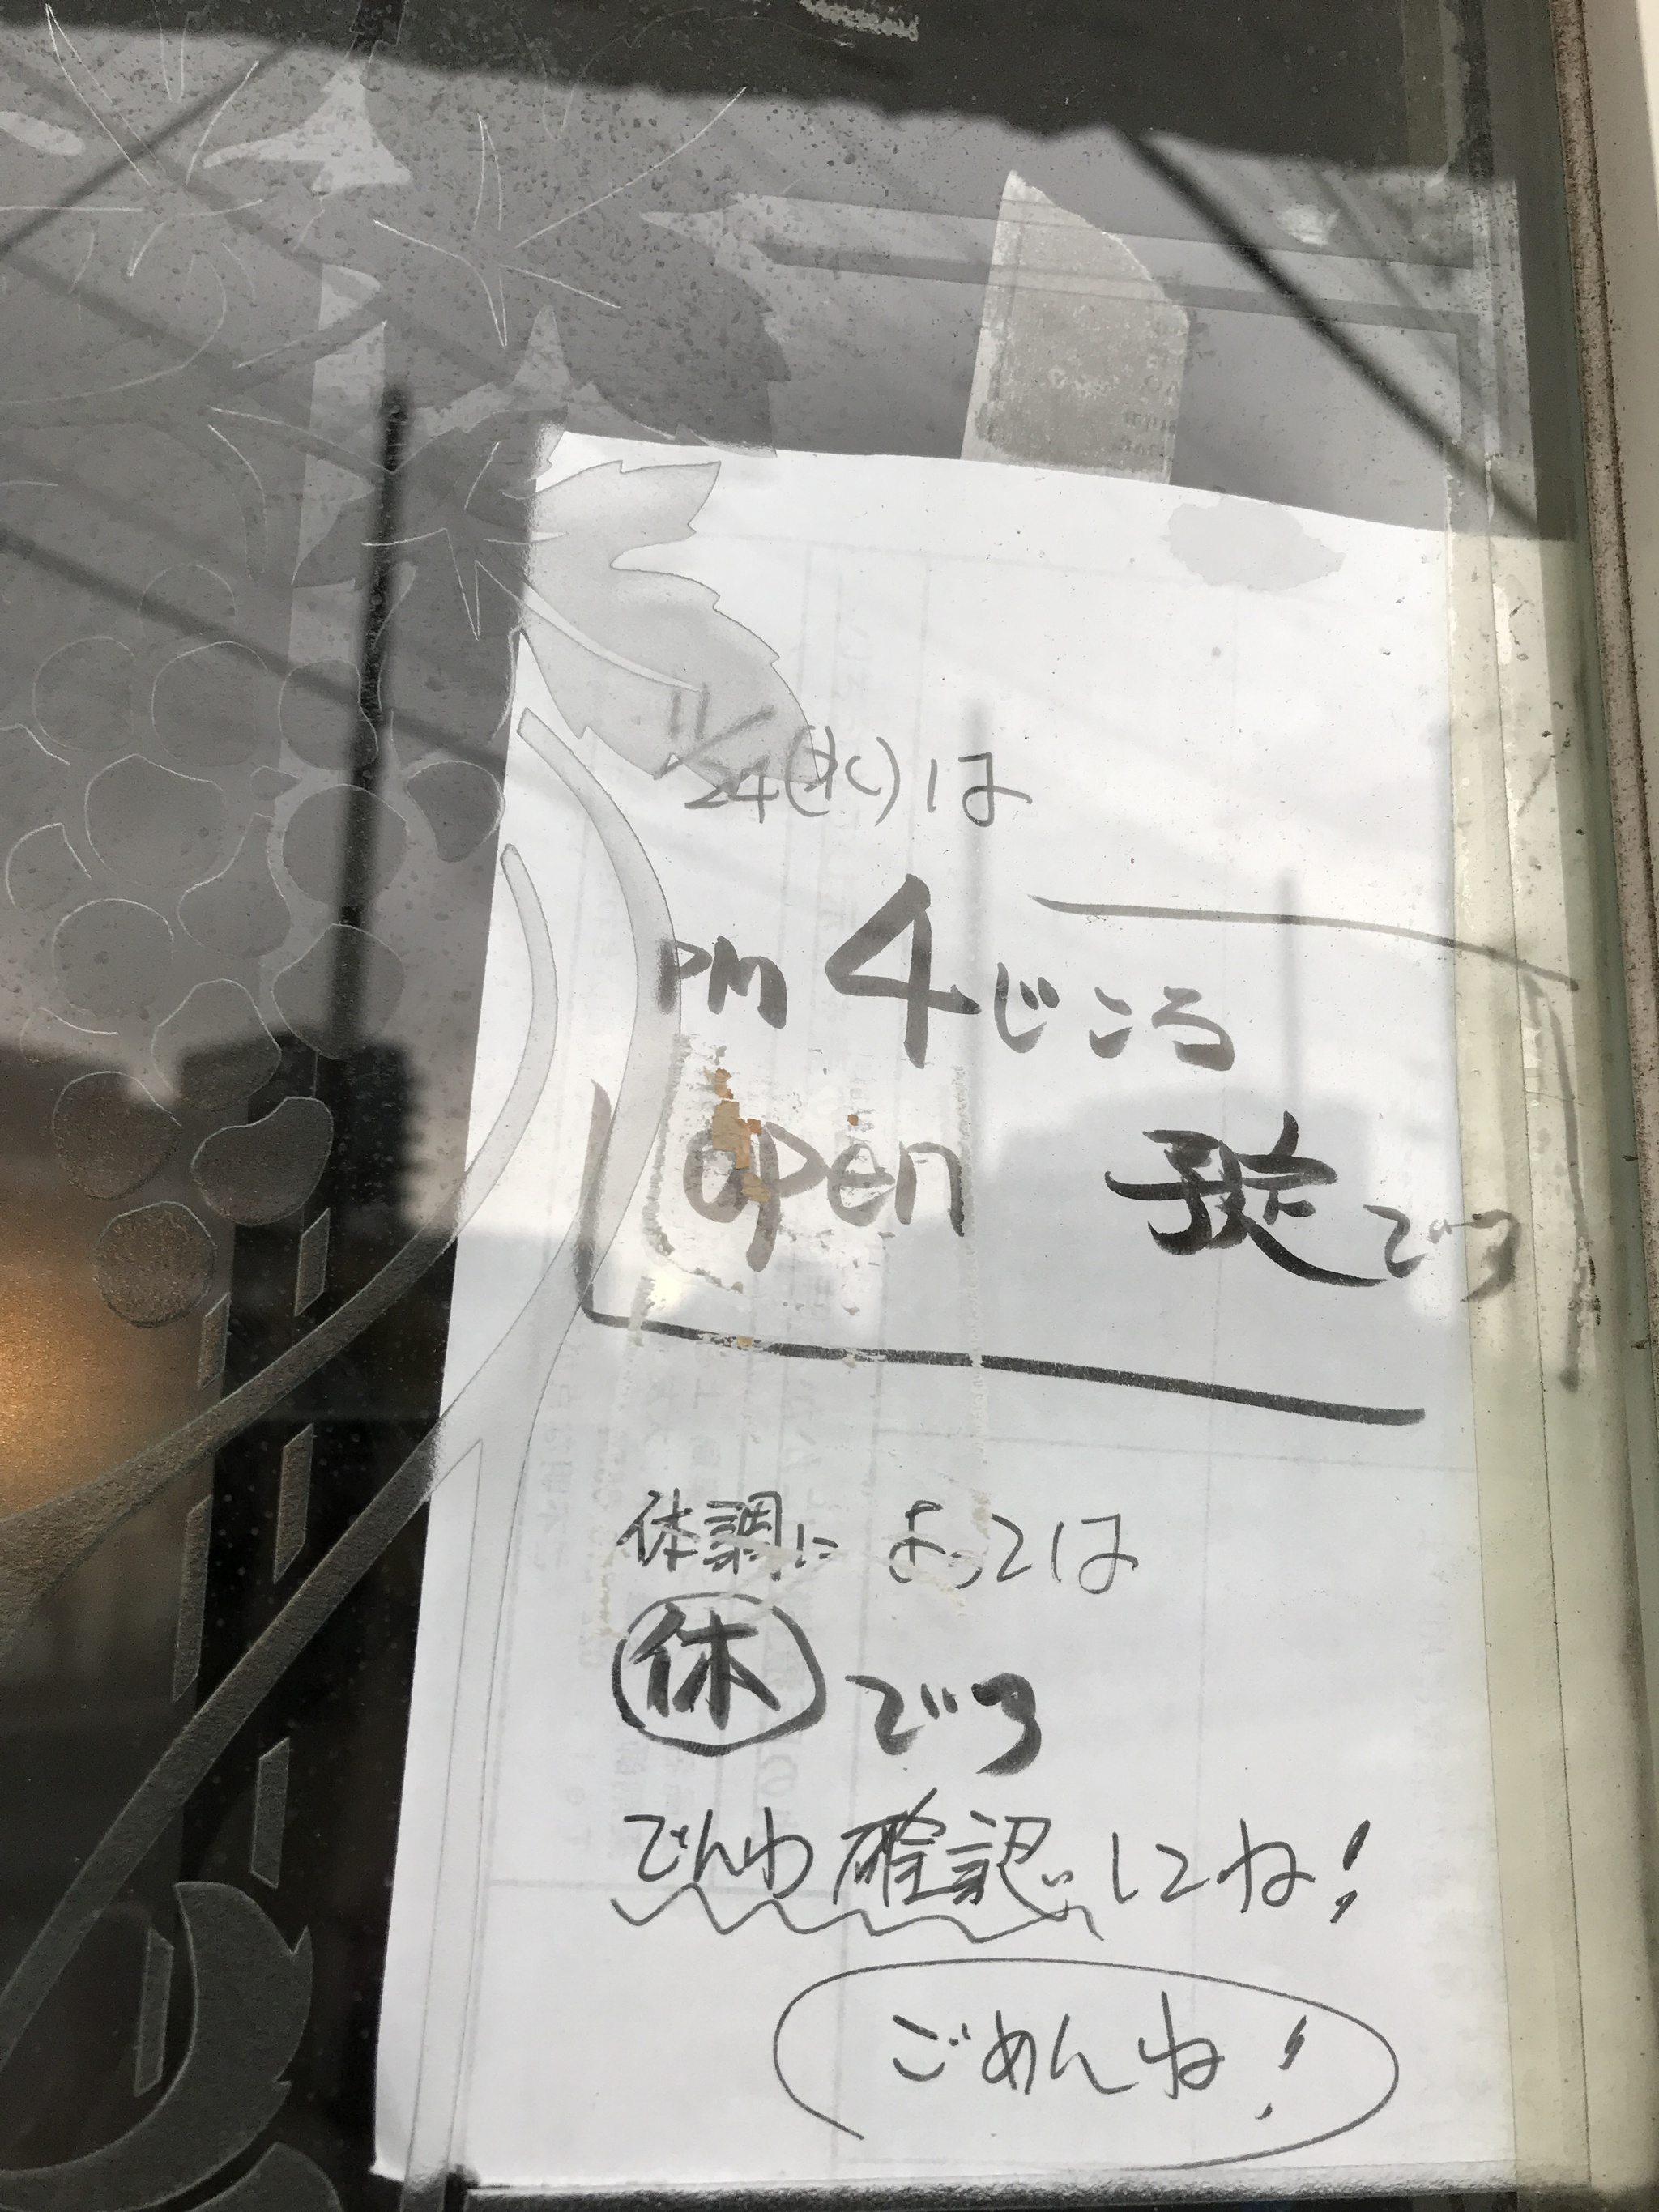 11/24(水)は
PM 4じごろ
open 予定です
体調によっては
休です
でんわ確認してね!
ごめんね!